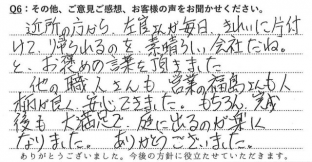 Q6：その他、ご意見ご感想、お客様の声をお聞かせください。
近所の方から、左官さんが毎日、きれいに片付
けて、帰られるのを素晴らしい会社だね。
と、お褒めの言葉を頂きました
他の職人さんも営業の福島さんも人
柄が良く安心できました。もちろん、完成
後も大満足で、庭に出るのが楽に
なりました。ありがとうございました。
ありがとうございました。今後の方針に役立たせていただきます。